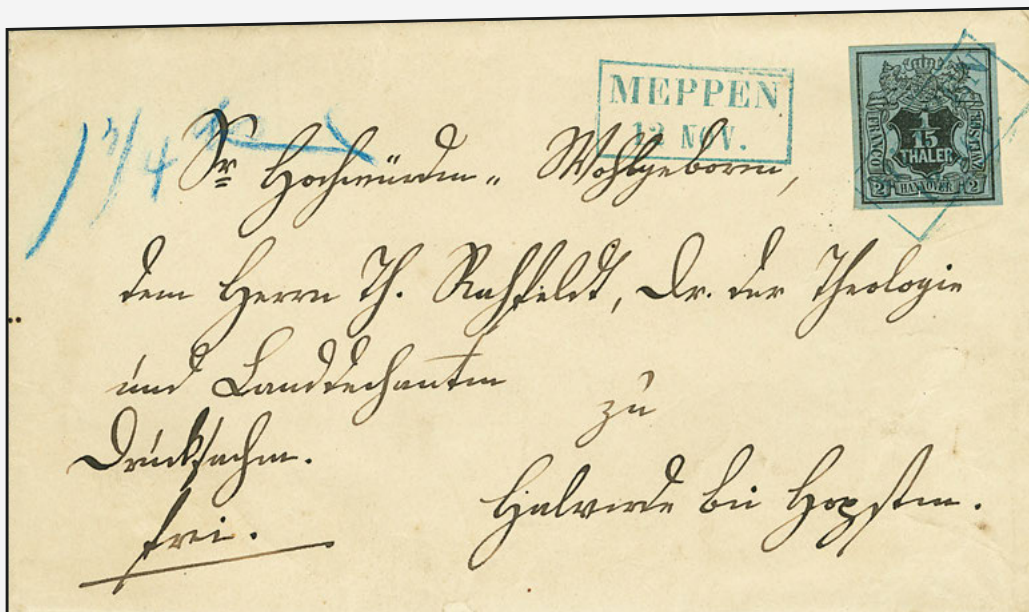 MEPPEN
12 NOV.
FRANCO
1
15
THALER
BESTELLT
2 HANNOVER 2
Sr Hochwürden, Wohlgeboren,
dem Herrn Th. Rahfeldt, Dr. der Theologie
und Landdechanten
zu
Drucksachen.
frei.
Halverde bei Hopsten.